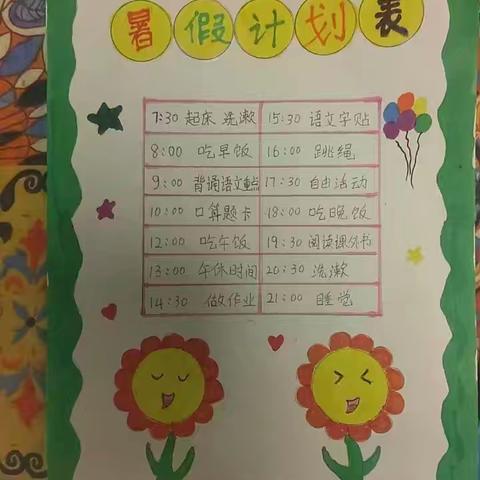 暑假计划表
7:30 起床 洗漱 15:30 语文字贴
8:00 吃早饭 16:00 跳绳
9:00 背诵语文重点 17:30 自由活动
10:00 口算题卡 18:00 吃晚饭
12:00 吃午饭 19:30 阅读课外书
13:00 午休时间 20:30 洗漱
14:30 做作业 21:00 睡觉